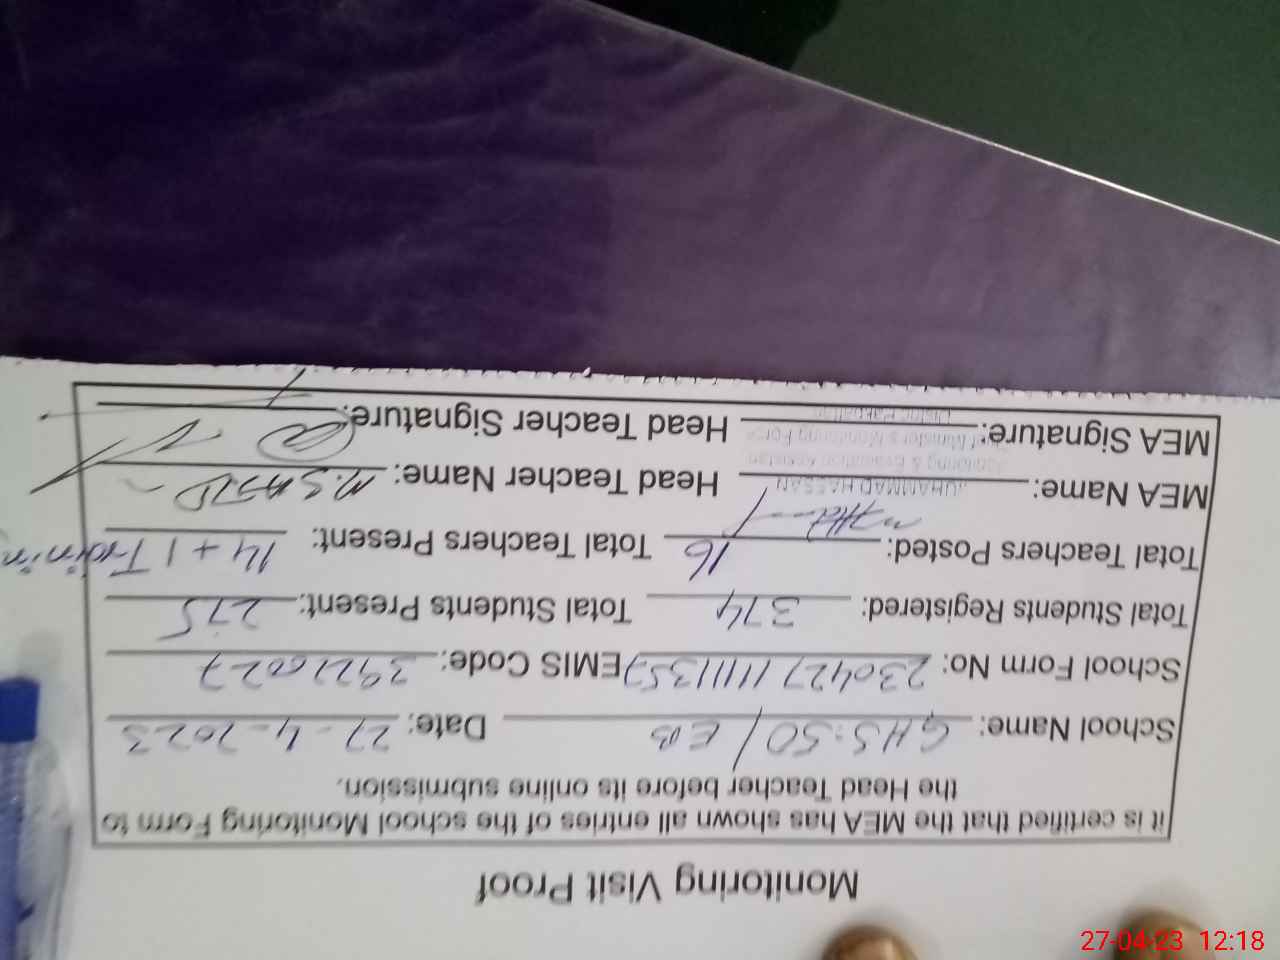 Monitoring Visit Proof
it is certified that the MEA has shown all entries of the school Monitoring Form to
the Head Teacher before its online submission.
School Name: GHS: 50/EB Date: 27-4-2023
School Form No: EMIS Code: 39210027
Total Students Registered: 374 Total Students Present: 275
Total Teachers Posted: 16 Total Teachers Present: 14+1 Trainin
MEA Name: UHAMMAD HASSAN Head Teacher Name: M. SAJID
Monitoring & Evaluation Assistan
MEA Signature: Head Teacher Signature:
Chief Minister's Monitoring Force
District Pakpattan
27-04-23 12:18